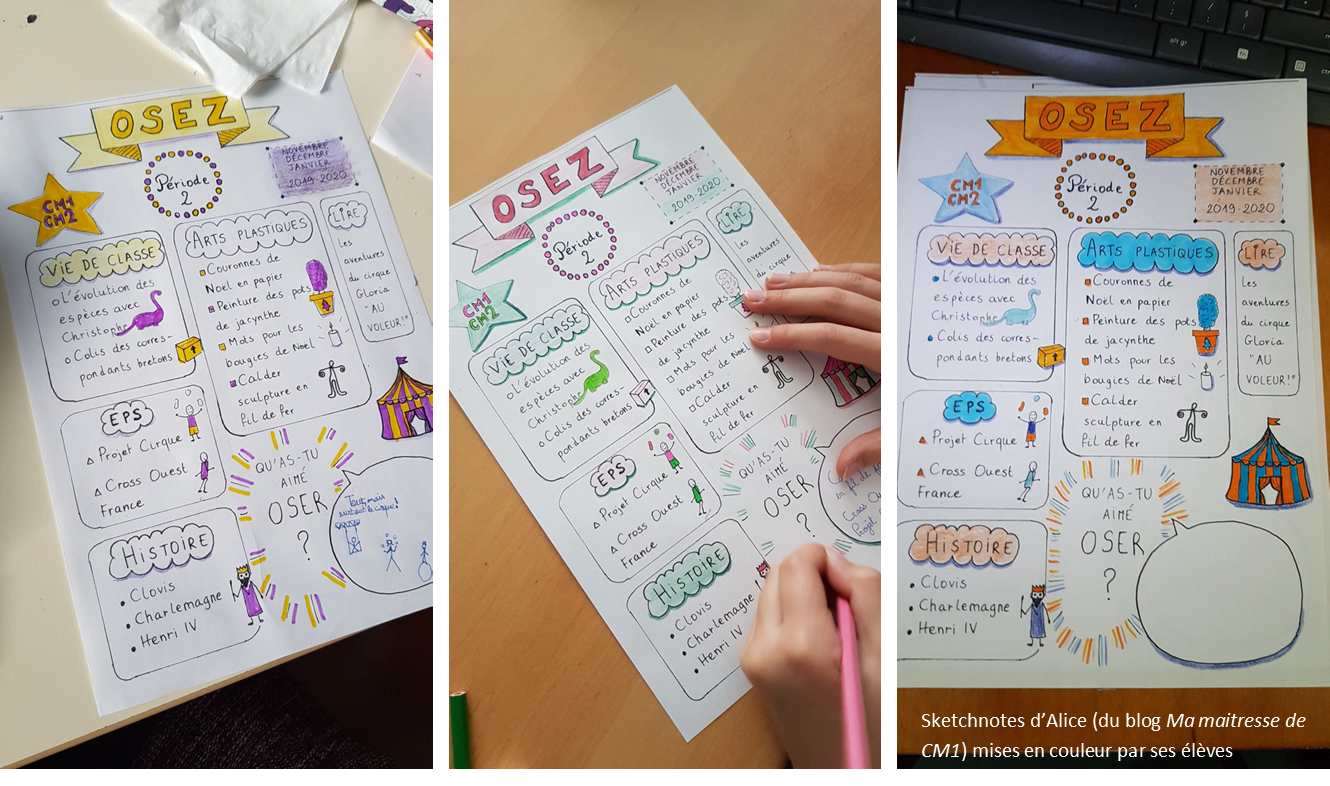 OSEZ
Période
2
NOVEMBRE
DÉCEMBRE
JANVIER
2019-2020
CM1
CM2
VIE DE CLASSE
L'évolution des
espèces avec
Christophe
Colis des corres-
pondants bretons
ARTS PLASTIQUES
Couronnes de
Noël en papier
Peinture des pots
de jacynthe
Mots pour les
bougies de Noël
Calder
sculpture en
fil de fer
LIRE
Les
aventures
du cirque
Gloria
"AU
VOLEUR!"
EPS
Projet Cirque
Cross Ouest
France
HISTOIRE
Clovis
Charlemagne
Henri IV
QU'AS-TU
AIMÉ
OSER
?
Tout, mais
surtout le cirque!
OSEZ
Période
2
NOVEMBRE
DÉCEMBRE
JANVIER
2019-2020
CM1
CM2
VIE DE CLASSE
L'évolution des
espèces avec
Christophe
Colis des corres-
pondants bretons
ARTS PLASTIQUES
Couronnes de
Noël en papier
Peinture des pots
de jacynthe
Mots pour les
bougies de Noël
Calder
sculpture en
fil de fer
LIRE
Les
aventures
du cirque
EPS
Projet Cirque
Cross Ouest
France
HISTOIRE
Clovis
Charlemagne
Henri IV
QU'AS-TU
AIMÉ
OSER
?
alt gr
fn
OSEZ
Période
2
NOVEMBRE
DÉCEMBRE
JANVIER
2019-2020
CM1
CM2
VIE DE CLASSE
L'évolution des
espèces avec
Christophe
Colis des corres-
pondants bretons
ARTS PLASTIQUES
Couronnes de
Noël en papier
Peinture des pots
de jacynthe
Mots pour les
bougies de Noël
Calder
sculpture en
fil de fer
LIRE
Les
aventures
du cirque
Gloria
"AU
VOLEUR!"
EPS
Projet Cirque
Cross Ouest
France
HISTOIRE
Clovis
Charlemagne
Henri IV
QU'AS-TU
AIMÉ
OSER
?
Sketchnotes d'Alice (du blog Ma maitresse de
CM1) mises en couleur par ses élèves